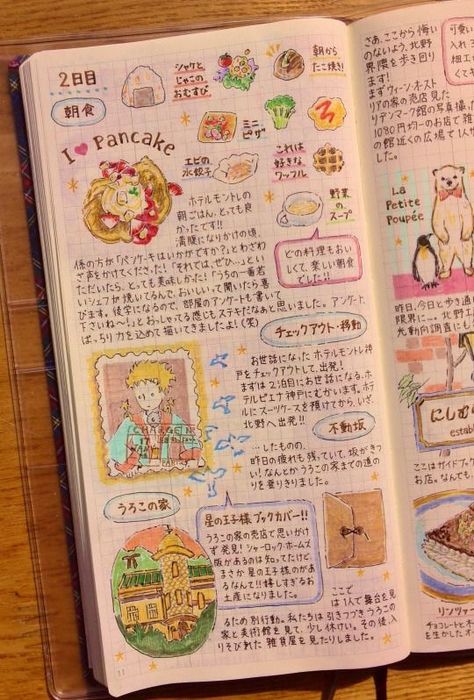 2日目
朝食
シャケと
じゃこの
おむすび
朝から
たこ焼き!
I ♥ Pancake
ミニ
ピザ
エビの
水餃子
これは
好きな
ワッフル
野菜
のスープ
ホテルモントレの
朝ごはん、とっても良
かったです!!
満腹になりかけの頃、
係の方が「パンケーキはいかがですか?」とわざわ
ざ声をかけてくださった!「それでは、ぜひ…」とい
ただいたら、とっても美味しかった!「うちの一番若
いシェフが焼いてるんで、おいしいって聞いたら喜
びます。後学になるので、部屋のアンケートも書いて
下さいね〜!」とおっしゃてる感じもステキだなぁと思いました。アンケート、
ばっちり力を込めて描いてきましたよ!(笑)
どの料理もおい
しくて、楽しい朝食
でした!!
チェックアウト・移動
お世話になったホテルモントレ神
戸をチェックアウトして、出発!
まずは2泊目にお世話になる、ホ
テルピエナ神戸にむかいます。ホテ
ルにスーツケースを預けてから、いざ、
北野へ出発!!
不動坂
…したものの、
昨日の疲れも残っていて、坂がきつ
い!なんとかうろこの家までの道の
りを登りきりました。
うろこの家
星の王子様ブックカバー!!
うろこの家の売店で思いがけ
ず発見!シャーロック・ホームズ
版があるのは知ってたけど、
まさか星の王子様のがあ
るなんて!!嬉しすぎるお
土産になりました。
ここで
は1人で舞台を見
るため別行動。私たちは引きつづきうろこの
家と美術館を見て、少し休けい。その後、入
りそびれた雑貨屋を見たりしました。
11
さあ、ここから悔い
のないよう、北野
界隈を歩き回り
ます!
La
Petite
Poupée
にしむ